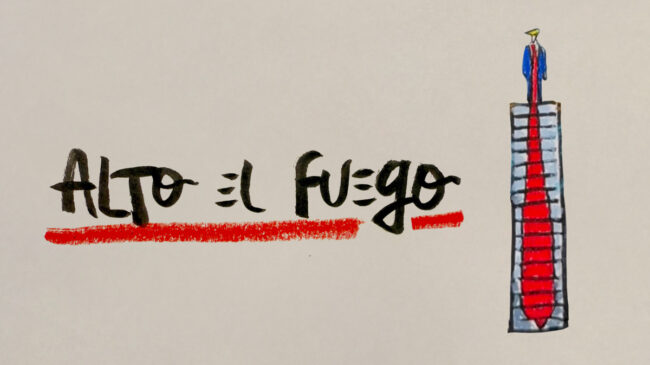 ALTO EL FUEgO